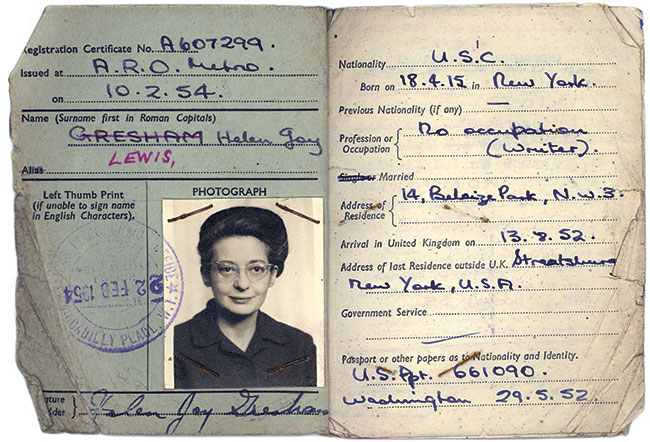 Registration Certificate No. A607299.
Issued at A.R.O. Metro.
on 10.2.54.
Name (Surname first in Roman Capitals)
GRESHAM Helen Joy
LEWIS,
Alias
Left Thumb Print
(if unable to sign name
in English Characters).
PHOTOGRAPH
22 FEB 1954
PICCADILLY PLACE, W.1.
Signature
of Holder } Helen Joy Gresham
Nationality U.S.C.
Born on 18.4.15 in New York.
Previous Nationality (if any) —
Profession or
Occupation { No occupation
(Writer).
Single or Married
Address of
Residence { 14, Belsize Park, N.W.3.
Arrival in United Kingdom on 13.8.52.
Address of last Residence outside U.K. Staatsburg
New York, U.S.A.
Government Service
Passport or other papers as to Nationality and Identity.
U.S. Ppt. 661090.
Washington 29.5.52.